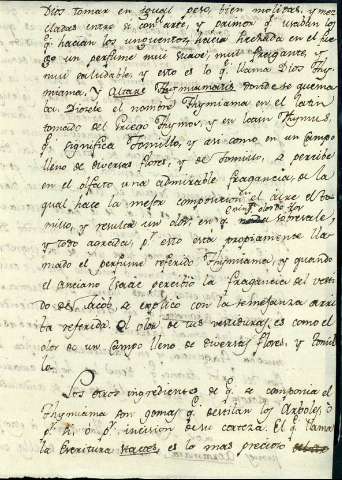 Dios tomar en igual peso, bien molidas, y mez
cladas entre si con arte, y primor q. usaban los
q. hacian los unguentos, hacia hechada en el fue
go un perfume mui suave, mui fragante, y
mui saludable, y esto es lo q. llama Dios Thy
miama, y Altare Thymiamatis donde se quema
ba. Diosele el nombre Thymiama en el latin
tomado del Griego Thymos, y en latin Thymus,
q. significa Tomillo, y asi como en un campo
lleno de diversas flores, y de tomillo, se percibe
en el olfato una admirable fragancia, de la
qual hace la mejor composicion el aire el to
millo, y resulta un olor, en q. sobresale,
y todo agrada, pr. esto está propriamente lla
mado el perfume referido Thymiama, y quando
el anciano Isaac percibió la fragancia del vesti
do de Jacob, se explicó con la semejanza arri
ba referida. El olor de tus vestiduras, es como el
olor de un campo lleno de diversas flores, y tomi
llo.
Los otros ingredientes de q. se componia el
Thymiama son gomas q. destilan los Arboles, ó
pr. si, ó pr. incision de su corteza. El q. llama
la Escritura stacte, es lo mas precioso